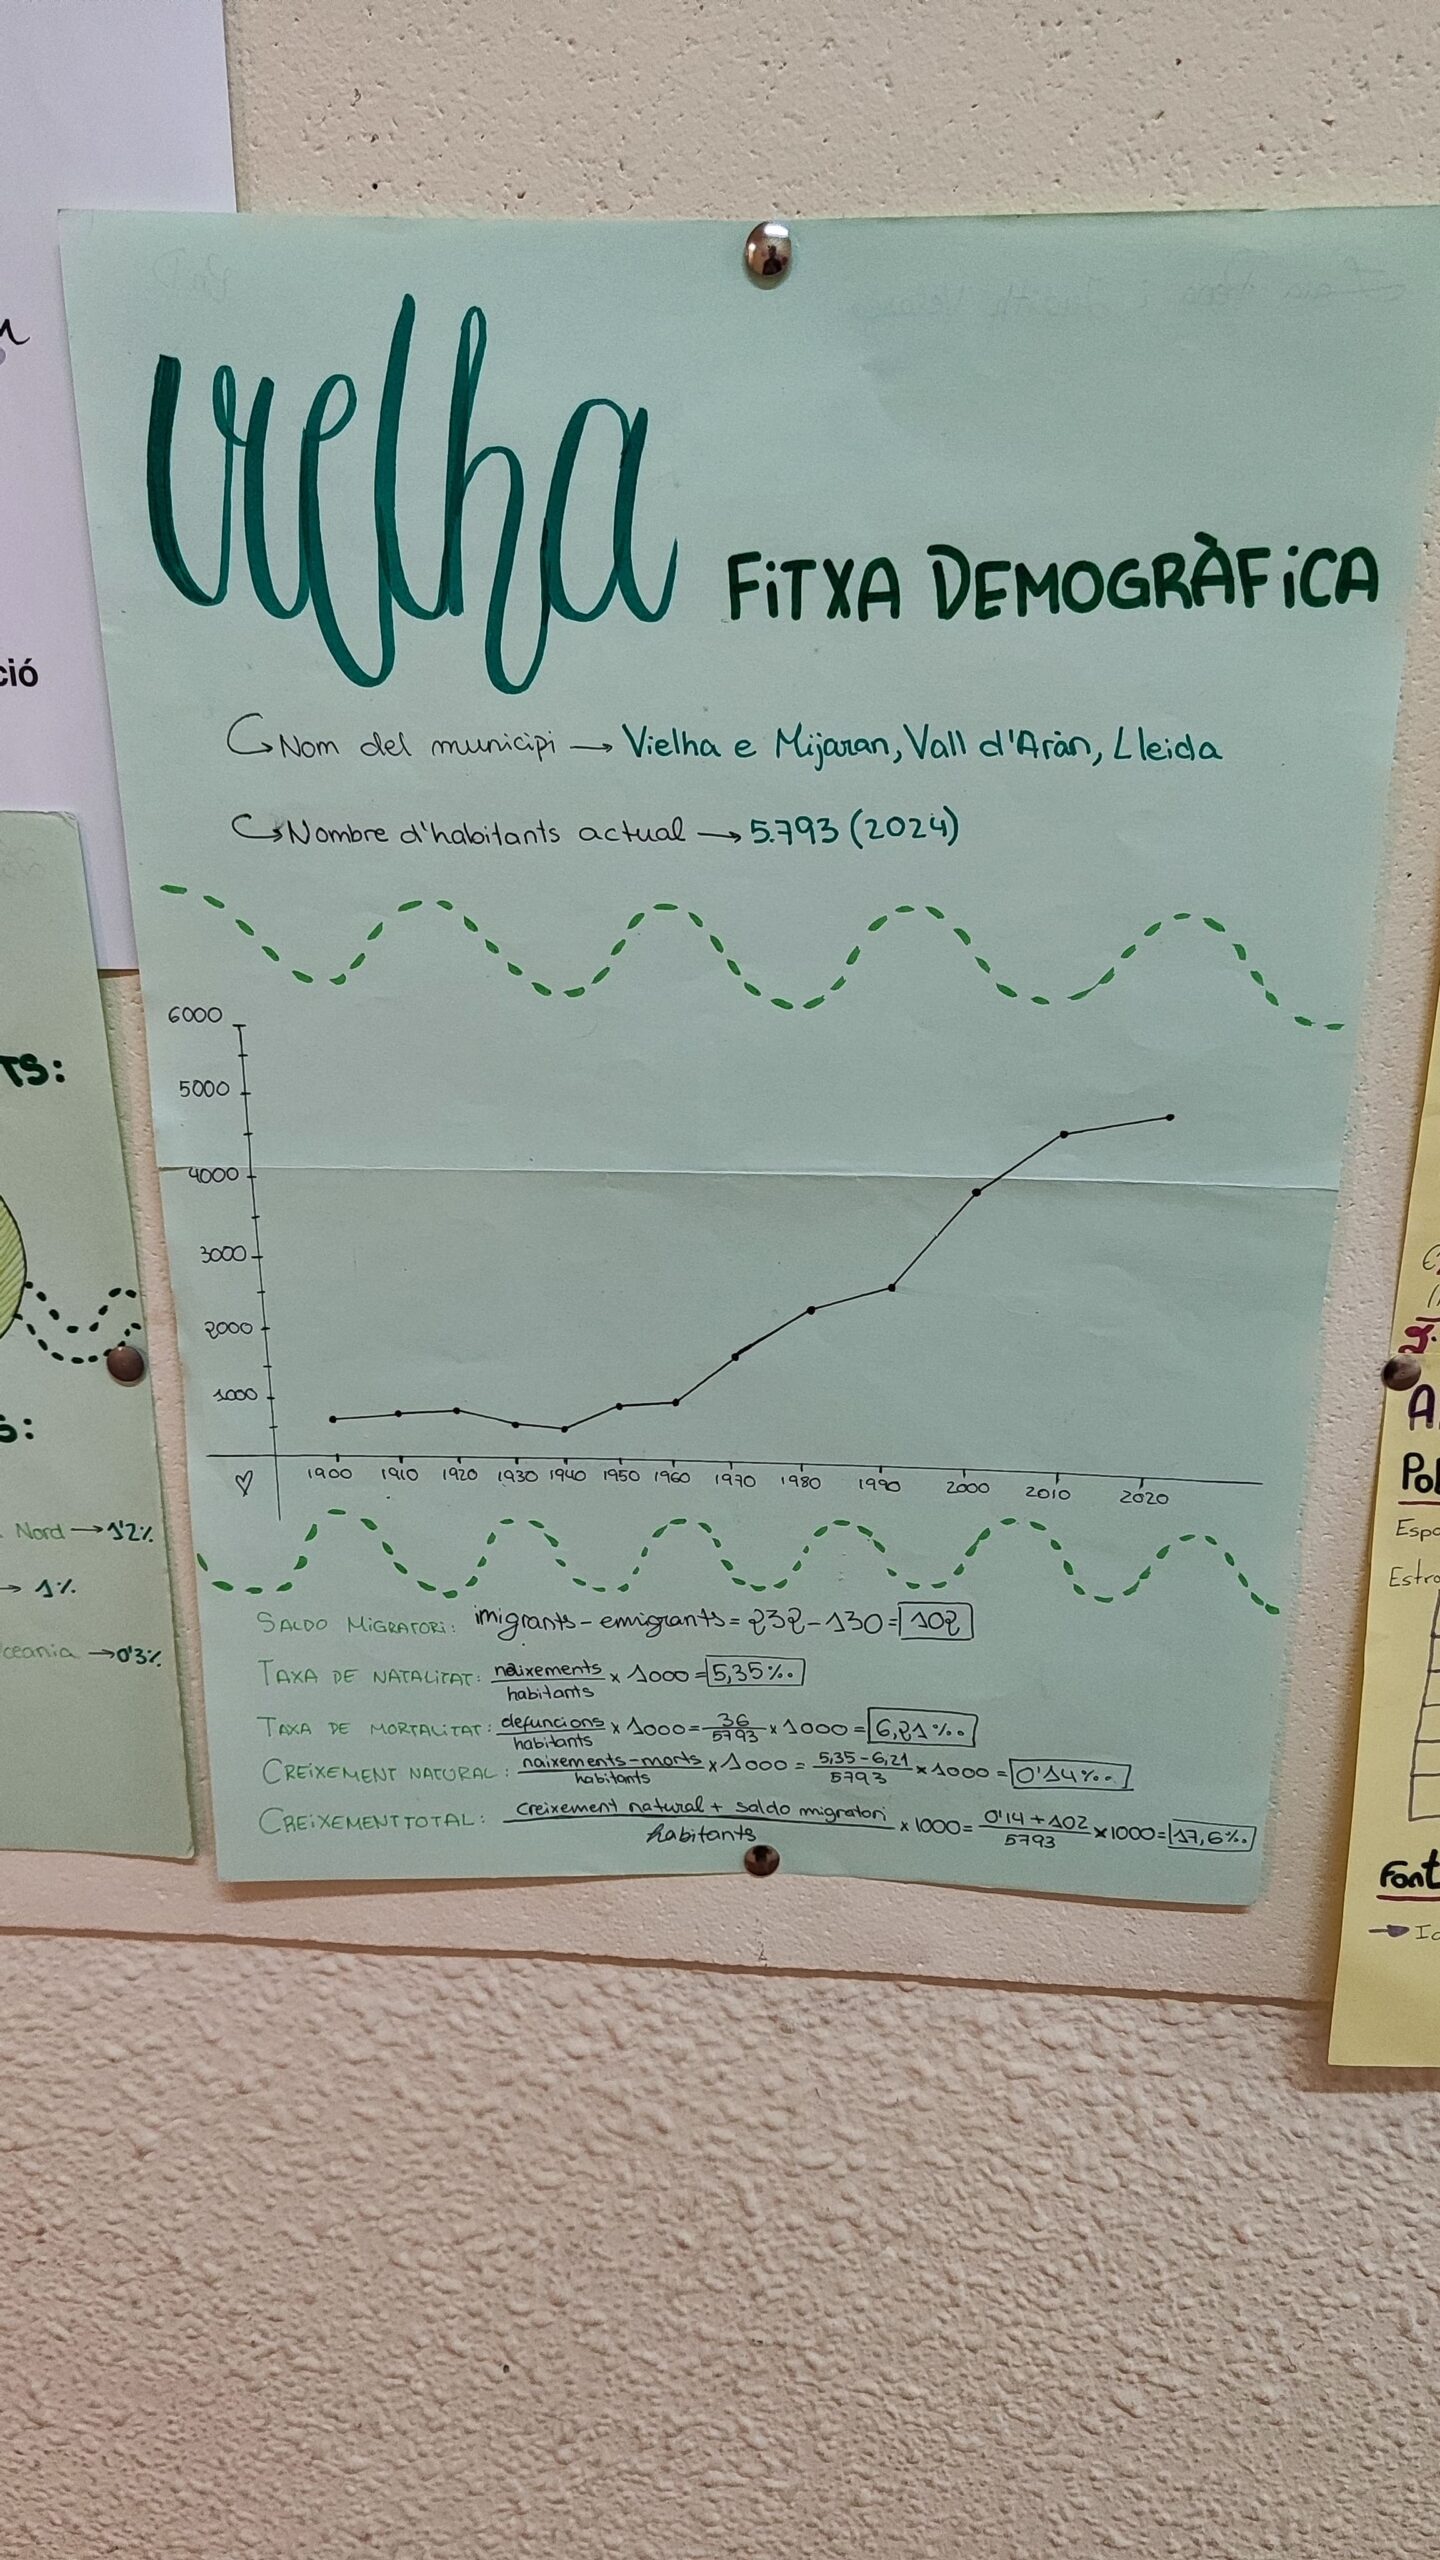 vielha FiTXA DEMOGRÀFiCA
Nom del municipi → Vielha e Mijaran, Vall d'Aràn, Lleida
Nombre d'habitants actual → 5.793 (2024)
6000
5000
4000
3000
2000
1000
1900 1910 1920 1930 1940 1950 1960 1970 1980 1990 2000 2010 2020
SALDO MiGRATORi: imigrants - emigrants = 232 - 130 = 102
TAXA DE NATALiTAT: naixements / habitants x 1000 = 5,35‰
TAXA DE MORTALiTAT: defuncions / habitants x 1000 = 36 / 5793 x 1000 = 6,21‰
CREiXEMENT NATURAL: naixements - morts / habitants x 1000 = 5,35 - 6,21 / 5793 x 1000 = 0'14‰
CREiXEMENT TOTAL: creixement natural + saldo migratori / habitants x 1000 = 0'14 + 102 / 5793 x 1000 = 17,6‰
ció
TS:
S:
Nord → 1'2%
→ 1%
ceania → 0'3%
Pob
Espa
Estra
Font